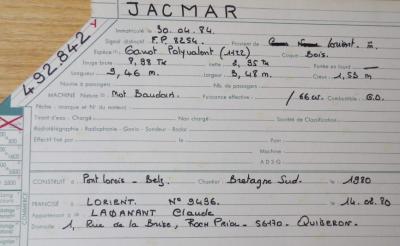 JACMAR
492.842
Immatriculé le 30.04.84.
Signal distinctif F.P. 8254. Provient de Lorient.
Espèce Canot Polyvalent (1122) Coque: Bois.
Jauge brute 8,98 Tx nette 2,95 Tx Portée en lourd
Longueur 9,46 m. Largeur 3,48 m. Creux 1,53 m
Navire à passagers Nb. de passagers
MACHINE Nature Mot. Baudouin. Puissance effective / 66 cv. Combustible G.O.
Pêche: marque et N° du moteur
Tirant d'eau - Chargé Non chargé Société de Classification
Radiotélégraphie - Radiophonie - Gonio - Sondeur - Radar
Effectif fixé par le
Pont
Machine
A D S G
CONSTRUIT à Pont Lorois - Belz. Chantier Bretagne Sud. le 1980
FRANCISÉ à LORIENT. N° 9496. le 14.02.80
Appartenant à LADANANT Claude
Domicile 1, Rue de la Brise, ROCH PRIOL - 56170 - QUIBERON.
COMMERCE